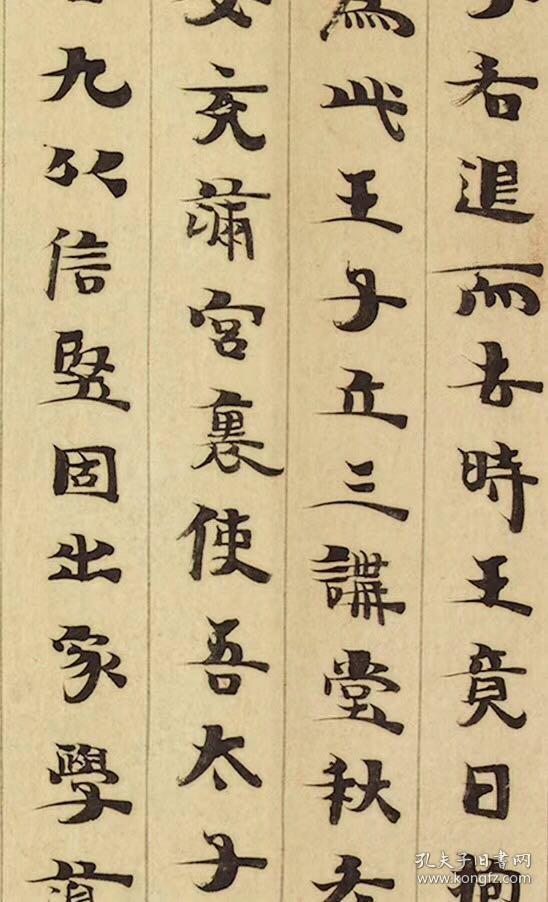 者退而去時王竟日
為此王子立三講堂秋冬
女充滿宮裏使吾太子
九以信堅固出家學道
孔夫子旧书网
www.kongfz.com